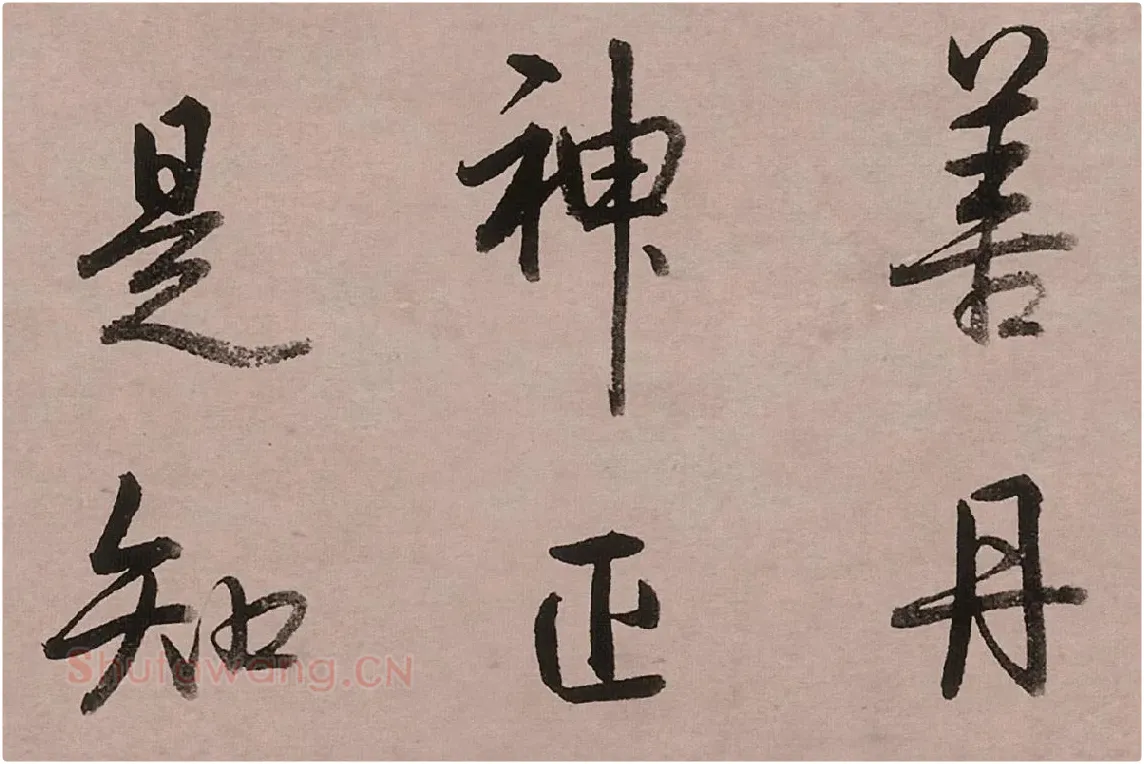 善丹
神正
是知
Shufawang.CN